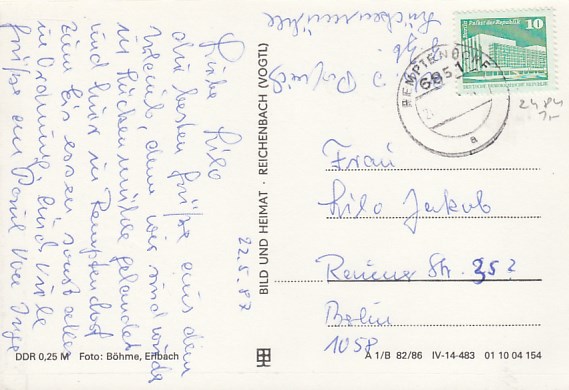 Liebe Lilo
die besten Grüße aus dem
Urlaub, denn wir sind wieder
in Lückenmühle gelandet
und hier in Remptendorf
zum Eis essen sonst alles
in Ordnung und viele
Grüße an Paul von Inge
22.5.87
Lückenmühle
BILD UND HEIMAT · REICHENBACH (VOGTL)
DDR 0,25 M Foto: Böhme, Erlbach
Berlin, Palast der Republik
10
DEUTSCHE DEMOKRATISCHE REPUBLIK
REMPTENDORF
6851
a
2484
Frau
Lilo Jakob
Str. 352
Berlin
1058
A 1/B 82/86 IV-14-483 01 10 04 154